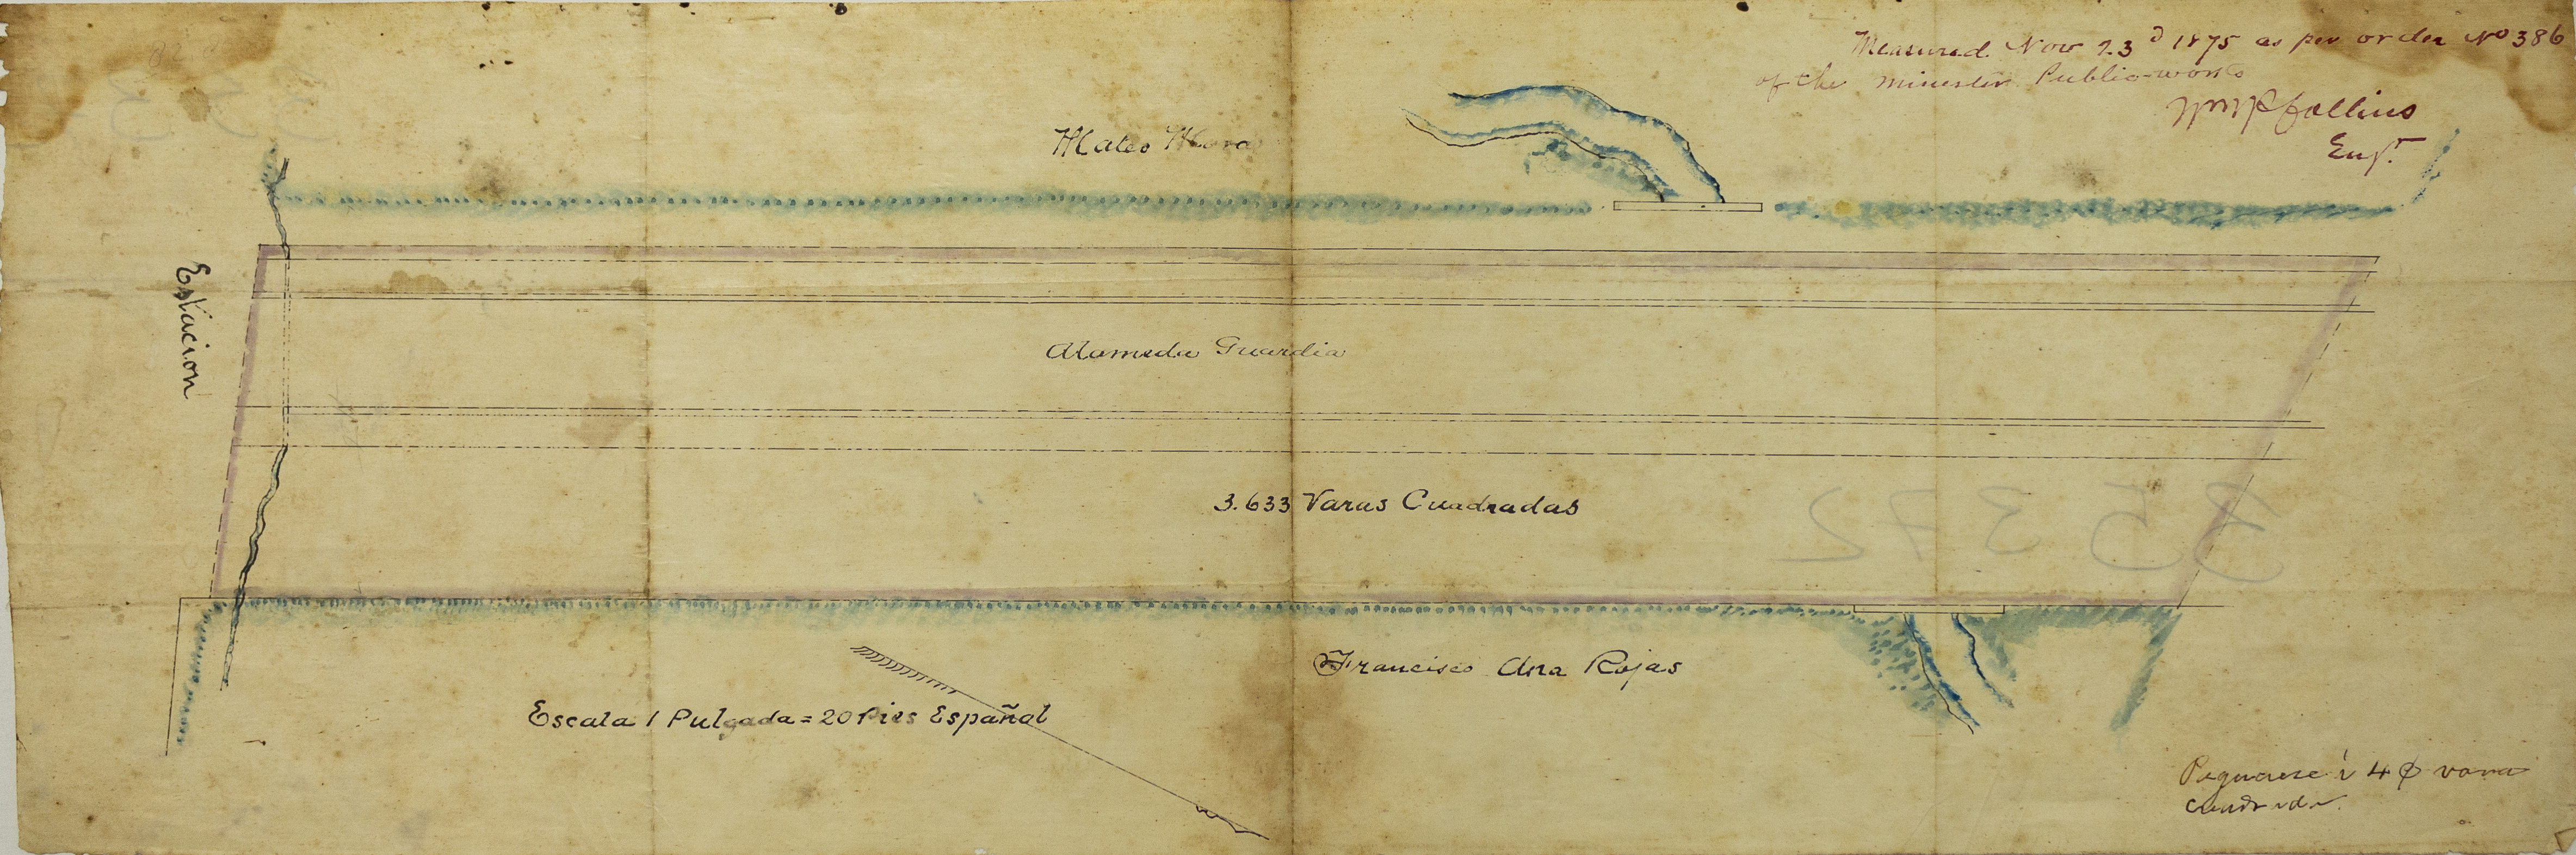 Measured Nov 23d 1875 as per order No 386
of the minister Public-works
Engr.
Mateo Mora
Estacion
Alameda Guardia
3.633 Varas Cuadradas
Francisco Ana Rojas
Escala 1 Pulgada = 20 Pies Español
á 4 ₵ vara
cuadrada.
35372